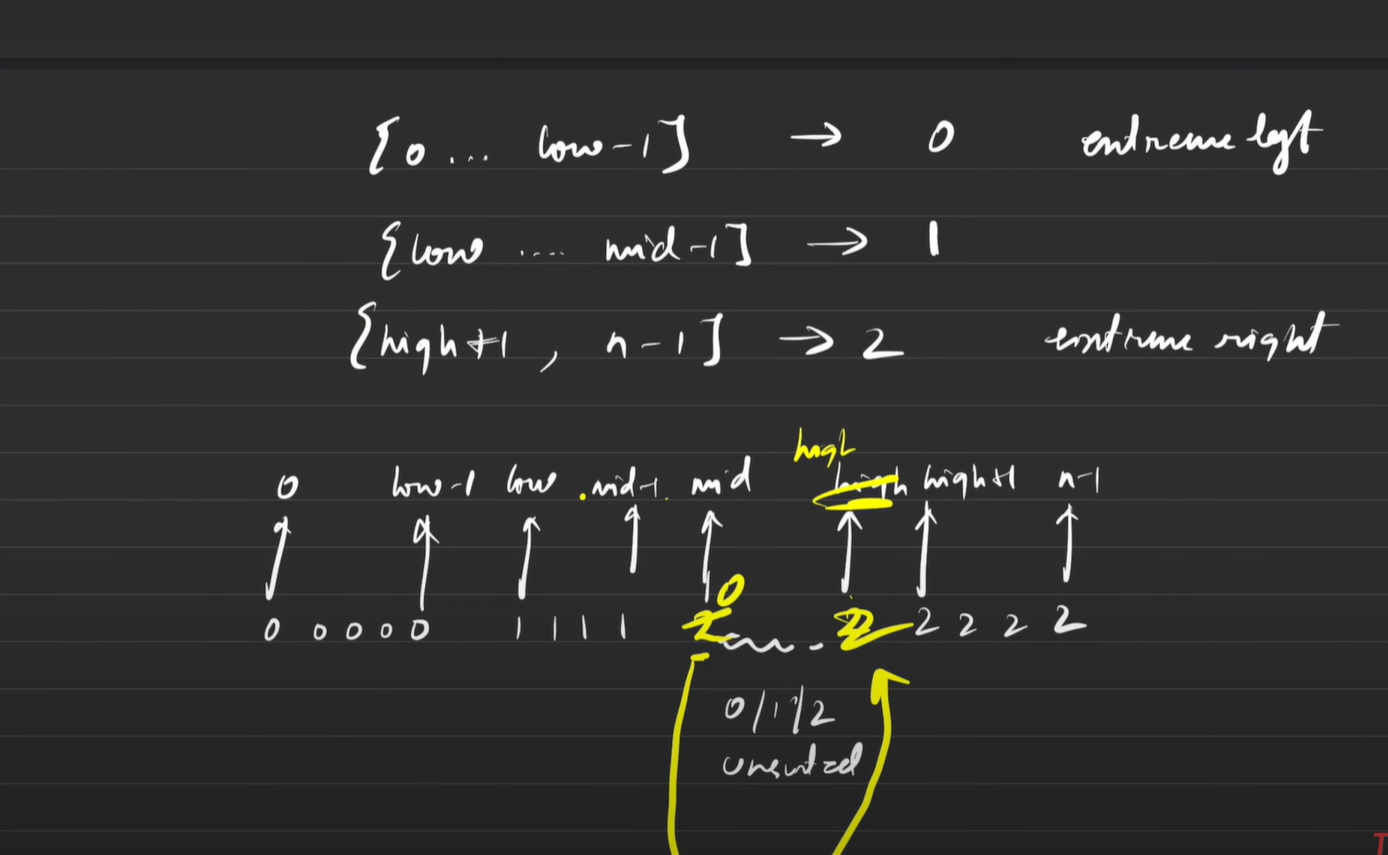 [0 ... low-1] → 0 extreme left
[low .... mid-1] → 1
[high+1, n-1] → 2 extreme right
high
0 low-1 low .mid-1. mid high high+1 n-1
0
0 0 0 0 0 1 1 1 1 2 . 2 2 2 2 2
0/1/2
unsorted
T